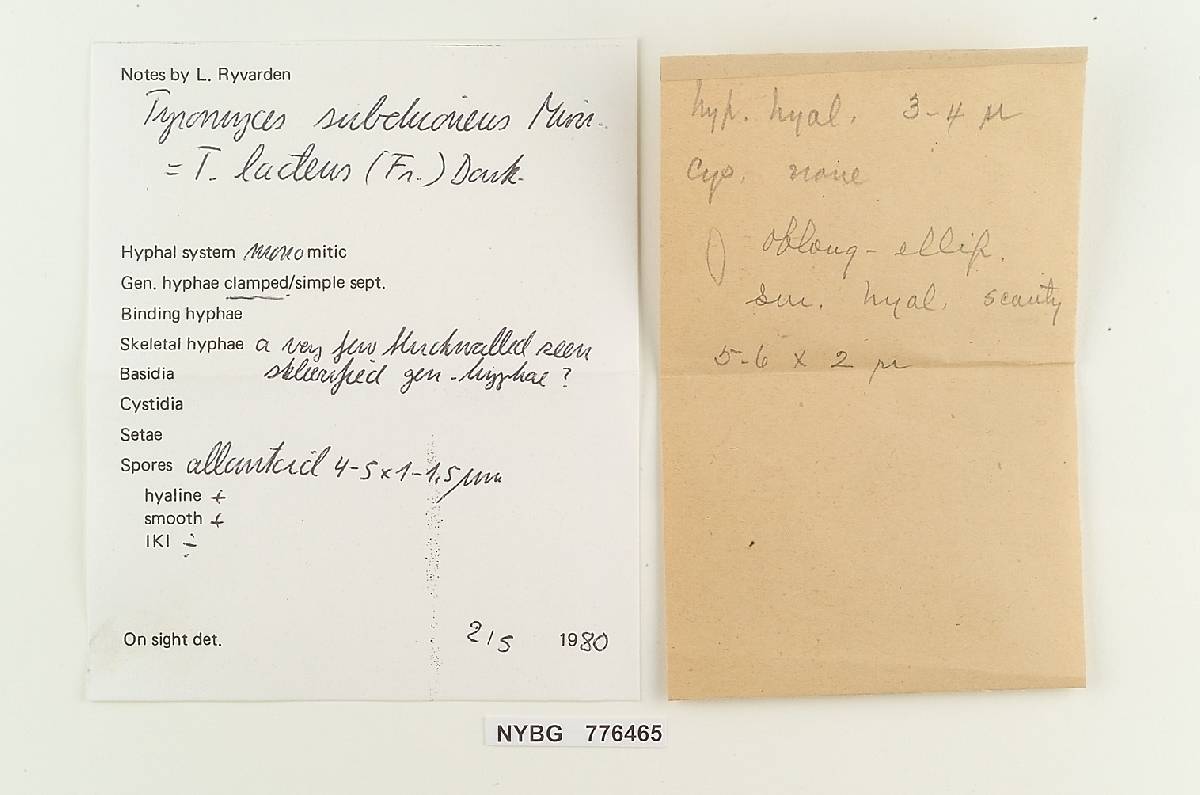 Notes by L. Ryvarden
Tyromyces subchioneus Murr.
= T. lacteus (Fr.) Donk.
Hyphal system monomitic
Gen. hyphae clamped/simple sept.
Binding hyphae
Skeletal hyphae a very few thickwalled seen
Basidia sklerified gen-hyphae?
Cystidia
Setae
Spores allantoid 4-5x1-1,5 µm
hyaline +
smooth +
IKI ÷
On sight det. 2/5 1980
hyp. hyal. 3-4 µ
Cys. none
oblong-ellip.
sm. hyal. scanty
5-6 x 2 µ
NYBG 776465